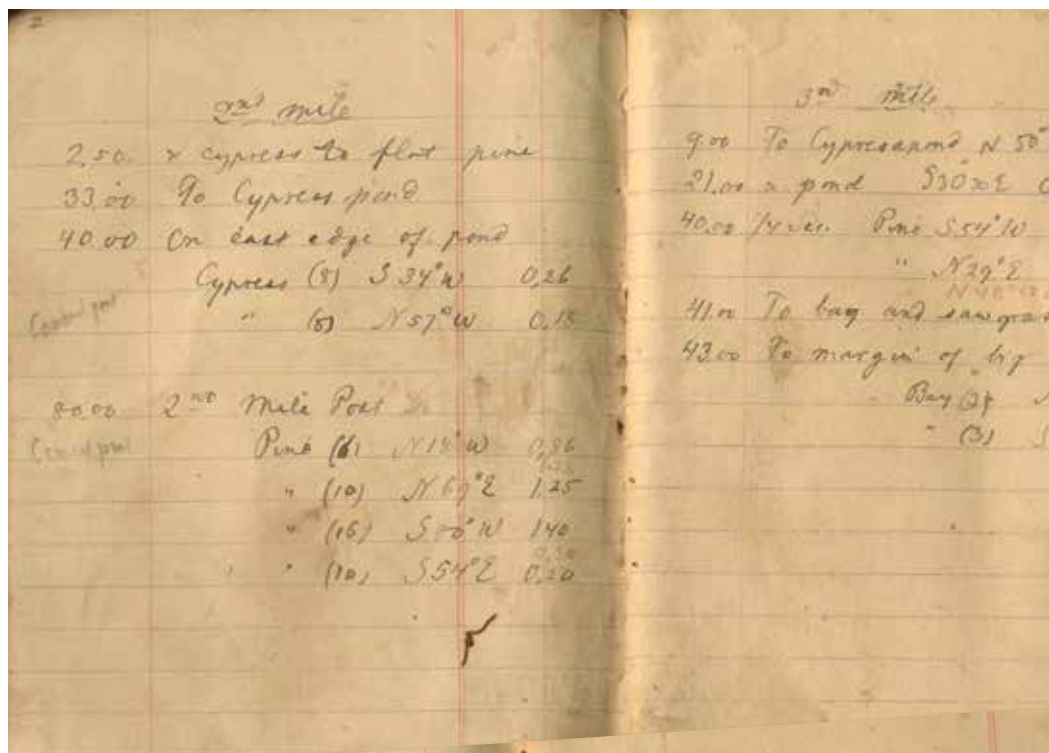 2
2nd mile
2.50 x cypress to flat pine
33.00 To Cypress pond
40.00 On east edge of pond
Cypress (8) S 34° W 0.26
" (8) N 57° W 0.18
80.00 2nd Mile Post
Pine (6) N 18° W 0.86
" (10) N 69° E 1.25
" (16) W 140
" (10) S 54° E 0.20
3rd mile
9.00 To Cypress pond N 50°
21.00 x pond S 30° E
40.00 1/4 sec. Pine S 54° W
" N 29° E
41.00 To bay and sawgrass
43.00 To margin of big
Bay (3)
" (3) S